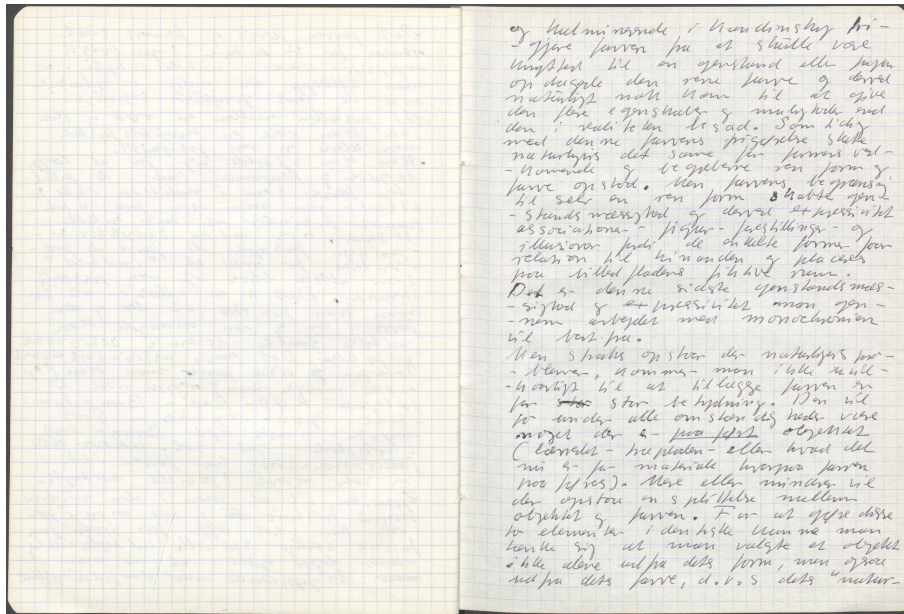 og kulminerende i Kandinsky fri-
-gjore farven fra at skulle være
knyttet til en genstand eller
opdagede den rene farve og derved
naturligt nok kom til at give
den flere egenskaber og muligheder end
den i realiteten besad. Som tidig
med denne farvens frigørelse skete
naturligvis det samme for formens ved-
-kommende og begreberne ren form og
farve opstod. Men farvens begrænsing
til selv en ren form skabte gen-
-standsmæssighed og derved expressivitet
associationer - figur - forestillinger - og
illusioner fordi de enkelte former faar
relation til hinanden og placeres
paa billedfladens fiktive rum.
Det er denne sidste genstandsmæs-
-sighed og expressivitet man gen-
-nem arbejdet med monochromien
vil bort fra.
Men straks opstaar der naturligvis pro-
-blemer, kommer man ikke uvil-
-kaarligt til at tillægge farven en
for stor betydning. Den vil
jo under alle omstændigheder være
noget der er paa ført objektet
(Lærredet - træpladen - eller hvad det
nu er for materiale hvorpaa farven
paaføres). Mere eller mindre vil
der opstaa en splittelse mellem
objektet og farven. For at gøre disse
to elementer identiske kunne man
tænke sig at man valgte et objekt
ikke alene ud fra dets form, men ogsaa
ud fra dets farve, d.v.s dets "natur-